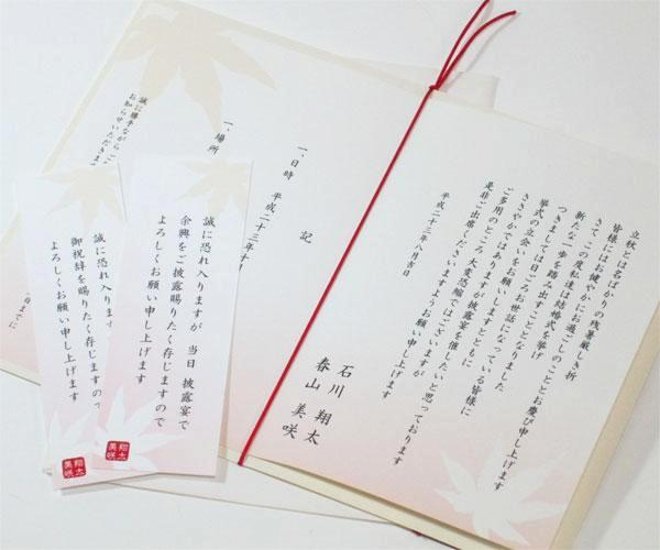 立秋とは名ばかりの残暑厳しき折
皆様にはお健やかにお過ごしのこととお慶び申し上げます
さて この度 私達は結婚式を挙げ
新たな一歩を踏み出すこととなりました
つきましては日ごろお世話になっている皆様に
挙式の立会いをお願いしますとともに
ささやかではありますが披露宴を催したいと思っております
ご多用のところ 大変恐縮ではございますが
是非ご出席くださいますようお願い申し上げます
平成二十三年八月吉日
石川 翔太
春山 美咲
記
一、日時 平成二十三年十月
一、場所
誠に勝手ながら
お知らせいただきま
日までに
誠に恐れ入りますが 当日 披露宴で
余興をご披露賜りたく存じますので
よろしくお願い申し上げます
翔太
美咲
誠に恐れ入りますが
御祝辞を賜りたく存じますので
よろしくお願い申し上げます
翔太
美咲